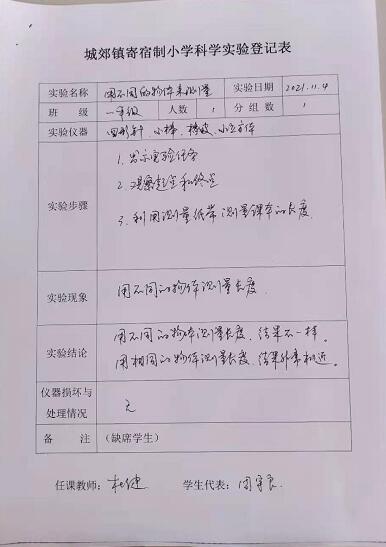 城郊镇寄宿制小学科学实验登记表
实验名称 用不同的物体来测量 实验日期 2021.11.4
班 级 一年级 人数 1 分组数 1
实验仪器 回形针、小棒、橡皮、小立方体
实验步骤
1. 出示实验任务
2. 观察起点和终点
3. 利用测量纸带测量课本的长度
实验现象 用不同的物体测量长度
实验结论
用不同的物体测量长度、结果不一样。
用相同的物体测量长度、结果非常相近。
仪器损坏与
处理情况
无
备 注 (缺席学生)
任课教师: 杜健 学生代表: